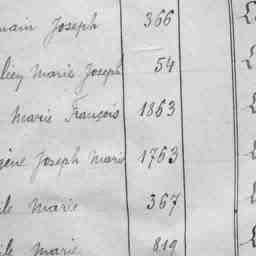 Joseph 366
Marie Joseph 54
Marie François 1863
Joseph Marie 1763
Marie 367
Marie 819